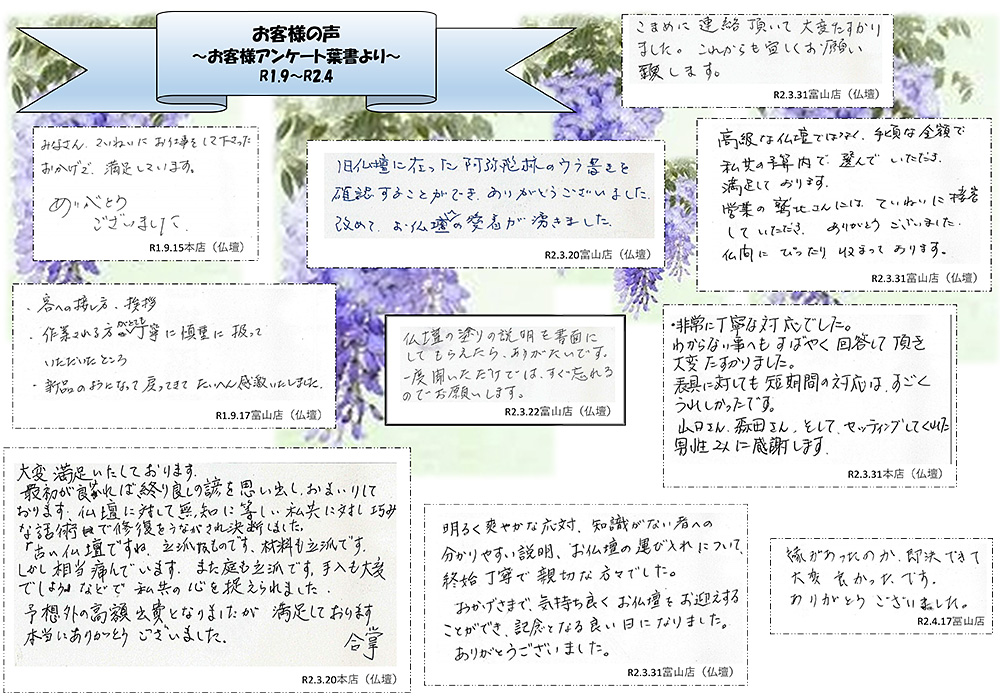 お客様の声
～お客様アンケート葉書より～
R1.9～R2.4
こまめに連絡頂いて大変たすかり
ました。これからも宜しくお願い
致します。
R2.3.31富山店（仏壇）
みなさん、ていねいにお仕事をして下さった
おかげで、満足しています。
ありがとう
ございました
R1.9.15本店（仏壇）
旧仏壇に在った阿弥陀様のウラ書きを
確認することができ、ありがとうございました。
改めて、お仏壇への愛着が湧きました。
R2.3.20富山店（仏壇）
高級な仏壇ではなく、手頃な金額で
私共の予算内で選んでいただき
満足しております。
営業の さんには、ていねいに接客
していただき、ありがとうございました。
仏間にぴったり収まっております。
R2.3.31富山店（仏壇）
・客への接し方、挨拶
・作業される方がとても丁寧に慎重に扱って
いただいたところ
・新品のおになって戻ってきてたいへん感激いたしました。
R1.9.17富山店（仏壇）
仏壇の塗りの説明を書面に
してもらえたら、ありがたいです。
一度聞いただけでは、すぐ忘れる
のでお願いします。
R2.3.22富山店（仏壇）
・非常に丁寧な対応でした。
わからない事へもすばやく回答して頂き
大変たすかりました。
表具に対しても短期間の対応は、すごく
うれしかったです。
山口さん、 田さん、そして、セッティングしてくれた
男性2人に感謝します。
R2.3.31本店（仏壇）
大変満足いたしております。
最初が良ければ終り良しの諺を思い出し、おまいりして
おります。仏壇に対して無知に等しい私共に対し巧み
な話術で修復をうながされ決断しました。
「古い仏壇ですね、立派なものです、材料も立派です。
しかし相当痛んでいます。また庭も立派です。手入も大変
でしょう」などで私共の心を捉えられました。
予想外の高額出費となりましたが満足しております
本当にありがとうございました。
合掌
R2.3.20本店（仏壇）
明るく爽やかな応対、知識がない者への
分かりやすい説明、お仏壇の運び入れについて、
終始丁寧で親切な方々でした。
おかげさまで、気持ち良くお仏壇をお迎えする
ことができ、記念となる良い日になりました。
ありがとうございました。
R2.3.31富山店（仏壇）
縁があったのか、即決できて
大変良かったです。
ありがとうございました。
R2.4.17富山店